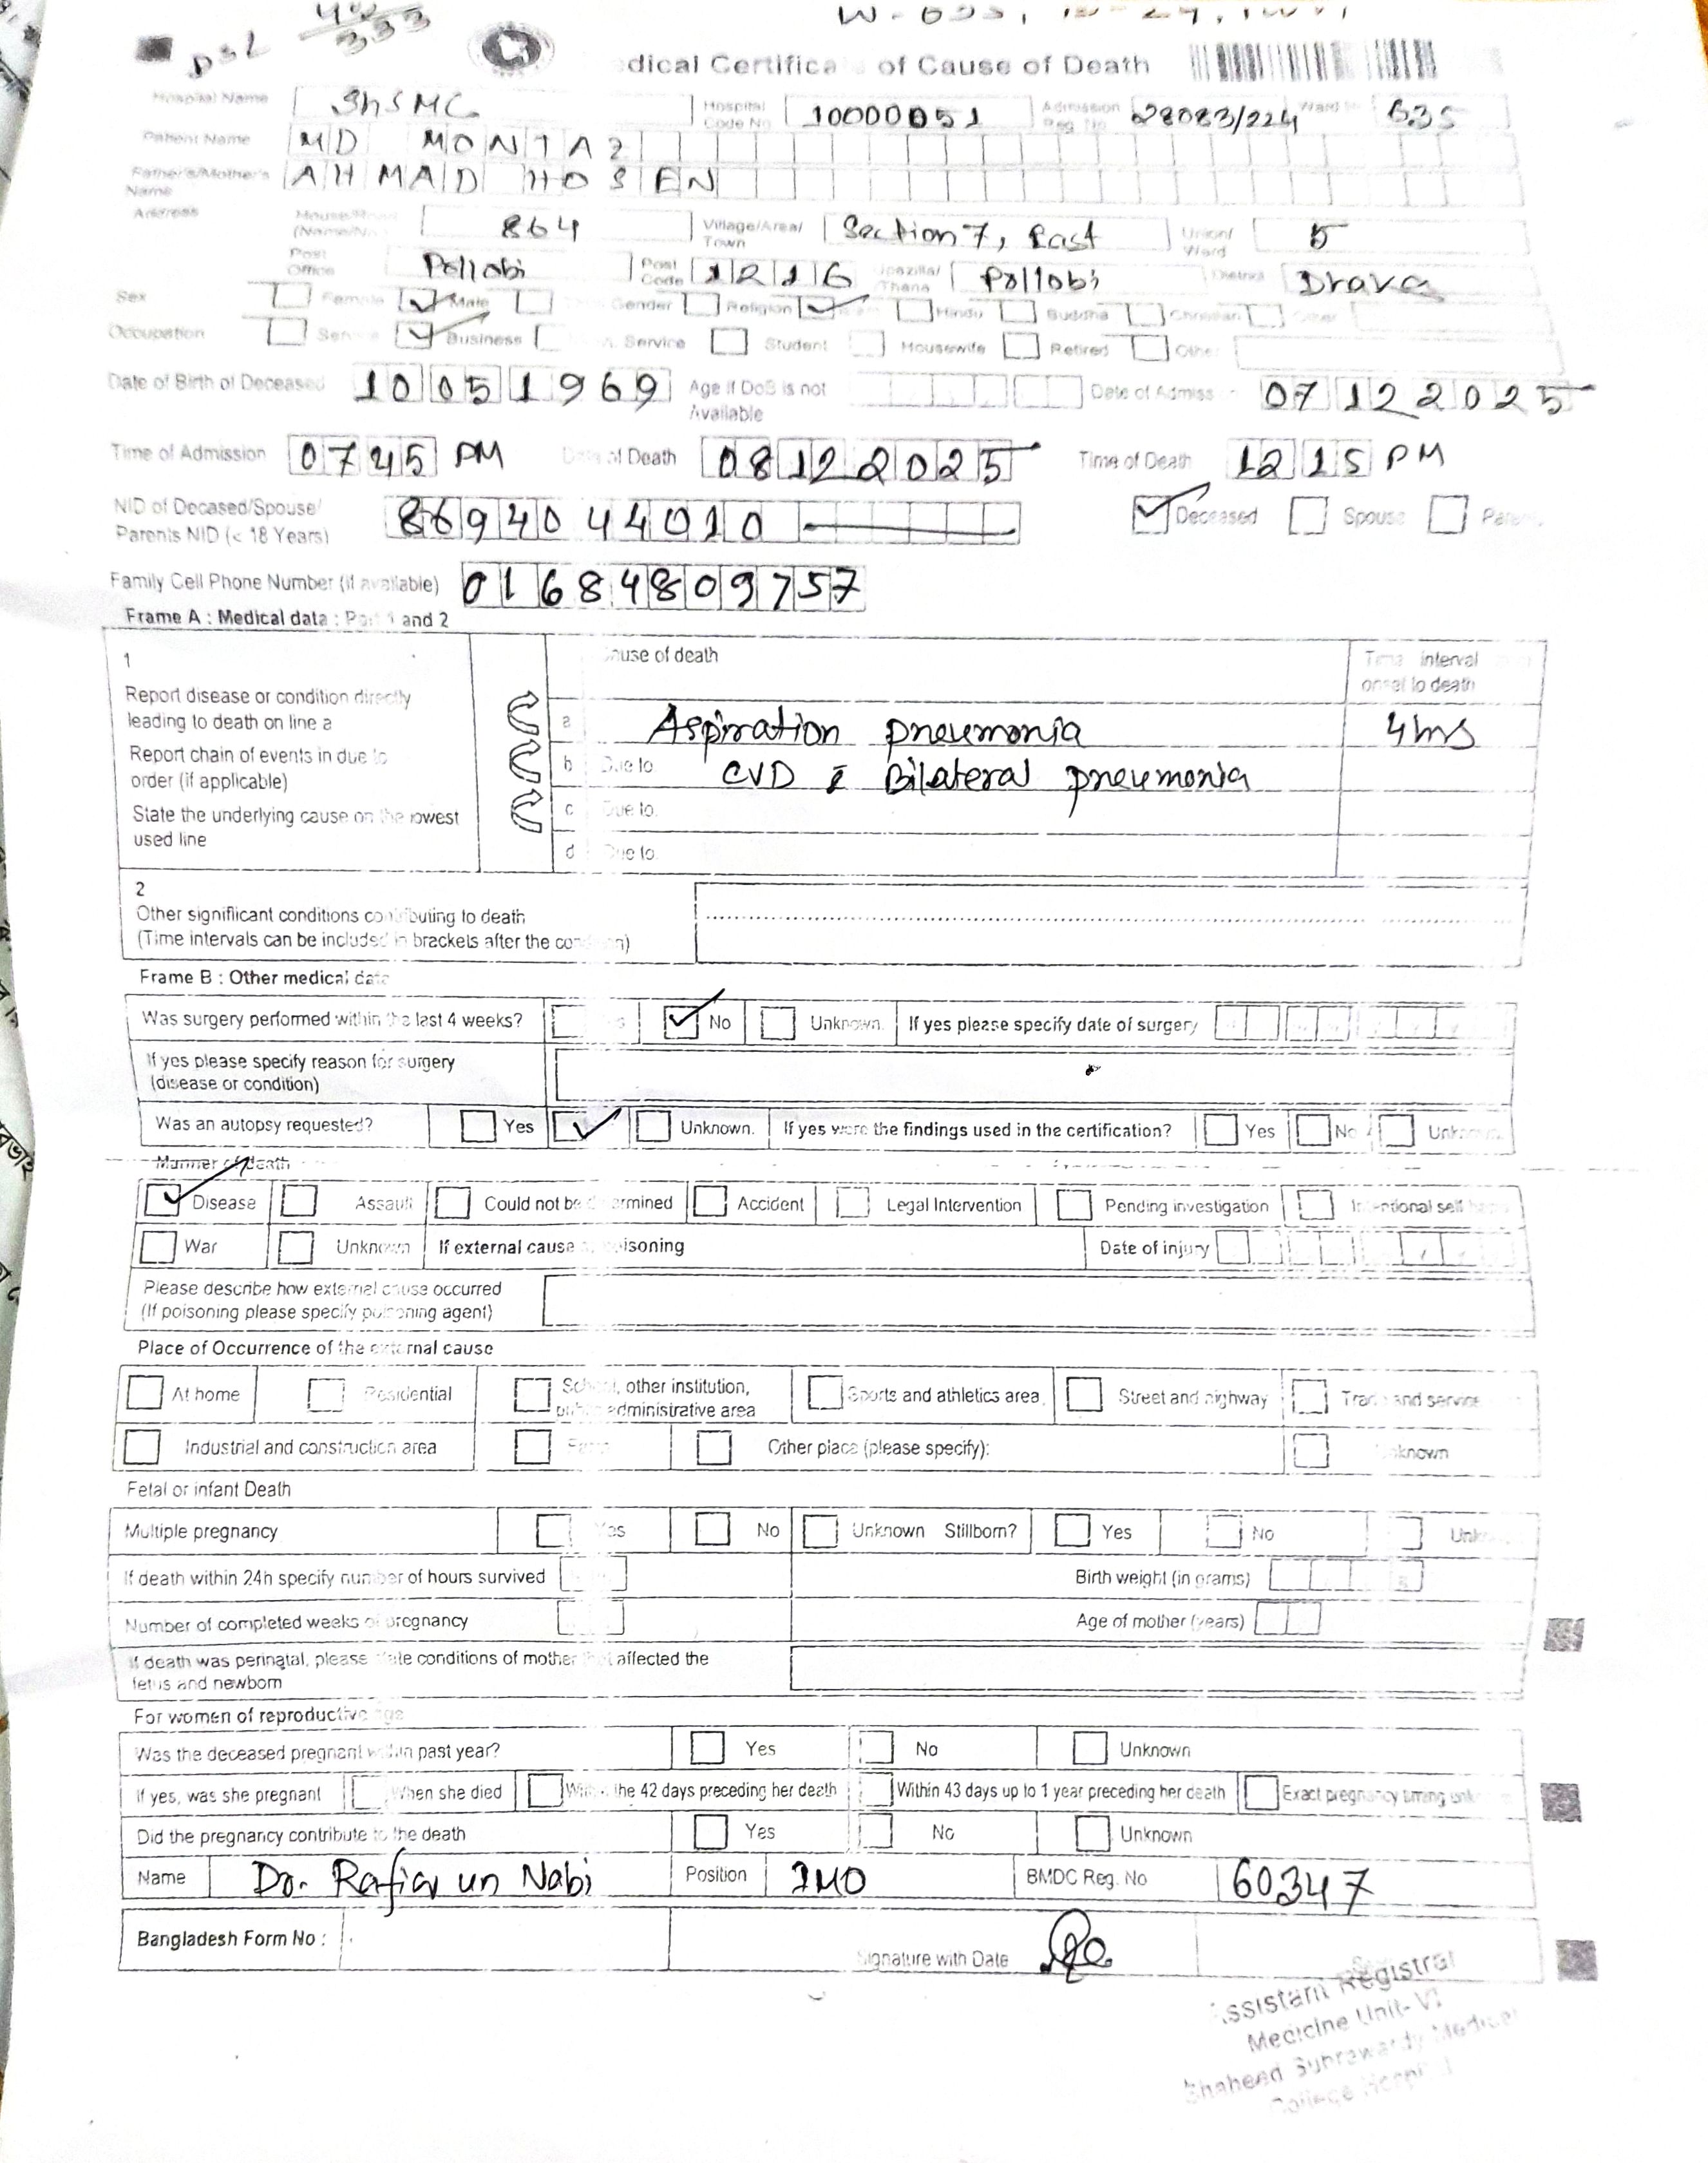 DSL 333
dical Certifica of Cause of Death
Hospital Name ShSMC Hospital Code No 10000051 Admission Reg No 28083/224 Ward 635
Patient Name MD MONTAZ
Father's/Mother's Name AHMAD HOSEN
Address House/ (Name/No 864 Village/Area/ Town Section 7, East Union/ Ward 5
Post Office Pollobi Post Code 1216 Upazilla/ Thana Pollobi District Dhaka
Sex Female Male Gender Religion Hindu Buddha Christian Other
Occupation Service Business Service Student Housewife Retired Other
Date of Birth of Deceased 10051969 Age if DoB is not Available Date of Admiss 07122025
Time of Admission 0745 PM Date of Death 08122025 Time of Death 1215 PM
NID of Decased/Spouse/ Parents NID (< 18 Years) 8694044010 Deceased Spouse Paren
Family Cell Phone Number (if available) 01684809757
Frame A : Medical data : Part 1 and 2
1 Cause of death Time interval onset to death
Report disease or condition directly leading to death on line a
a Aspiration pneumonia 4hrs
Report chain of events in due to order (if applicable)
b Due to CVD c̄ Bilateral pneumonia
State the underlying cause on the lowest used line
c Due to.
d Due to.
2
Other signifiicant conditions contributing to death
(Time intervals can be included in brackets after the condition)
Frame B : Other medical data
Was surgery performed within the last 4 weeks? No Unknown. If yes please specify date of surgery
If yes please specify reason for surgery
(disease or condition)
Was an autopsy requested? Yes Unknown. If yes were the findings used in the certification? Yes No Unknown
Manner of death
Disease Assault Could not be determined Accident Legal Intervention Pending investigation Intentional self
War Unknown If external cause poisoning Date of injury
Please describe how external cause occurred
(If poisoning please specify poisoning agent)
Place of Occurrence of the external cause
At home Residential School, other institution, public administrative area Sports and athletics area Street and highway Trade and service
Industrial and construction area Farm Other place (please specify): Unknown
Fetal or infant Death
Multiple pregnancy Yes No Unknown Stillborn? Yes No Unk
If death within 24h specify number of hours survived Birth weight (in grams)
Number of completed weeks of pregnancy Age of mother (years)
If death was perinatal, please state conditions of mother that affected the
fetus and newborn
For women of reproductive age
Was the deceased pregnant within past year? Yes No Unknown
If yes, was she pregnant When she died Within the 42 days preceding her death Within 43 days up to 1 year preceding her death Exact pregnancy timing unk
Did the pregnancy contribute to the death Yes No Unknown
Name Dr. Rafia un Nabi Position IMO BMDC Reg. No 60347
Bangladesh Form No : Signature with Date
Assistant Registrar
Medicine Unit- VI
Shaheed Suhrawardy Medical
College Hospital